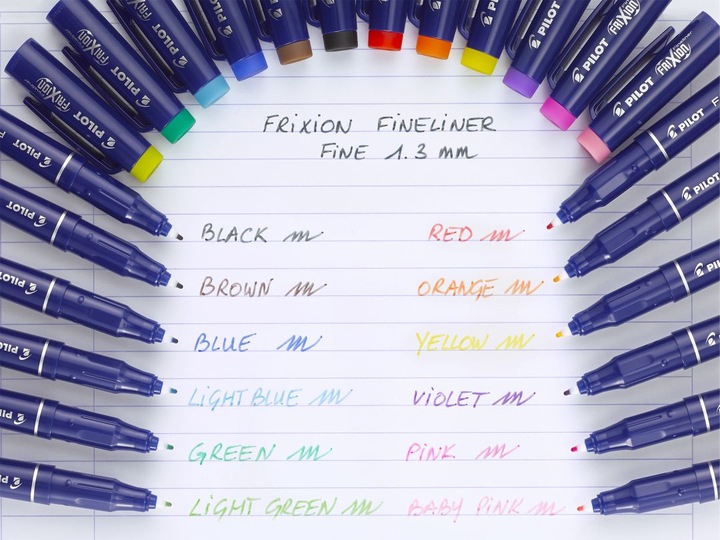 FRiXiON FiNELiNER
FiNE 1.3 mm
BLACK
BROWN
BLUE
LiGHT BLUE
GREEN
LiGHT GREEN
RED
ORANGE
YELLOW
ViOLET
PiNK
BABY PiNK
PILOT
FRIXION
PILOT
FRIXION
PILOT
FRIXION
PILOT
PILOT
PILOT
FRIXION
PILOT
FRIXION
PILOT
PILOT
PILOT
PILOT
PILOT
PILOT
PILOT
PILOT
PILOT